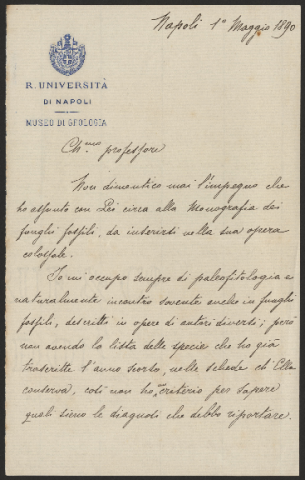 Napoli 1° Maggio 1890
R. UNIVERSITÀ
DI NAPOLI
MUSEO DI GEOLOGIA
Ch.mo professore
Non dimentico mai l'impegno che
ho assunto con Lei circa alla Monografia dei
funghi fossili, da inserirsi nella sua opera
colossale.
Io mi occupo sempre di paleofitologia e
naturalmente incontro sovente anche in funghi
fossili, descritti in opere di autori diversi; però
non avendo la lista delle specie che ho già
trascritte l'anno scorso, nelle schede ch'Ella
conserva, così non ho criterio per sapere
quali sieno le diagnosi che debbo riportare.